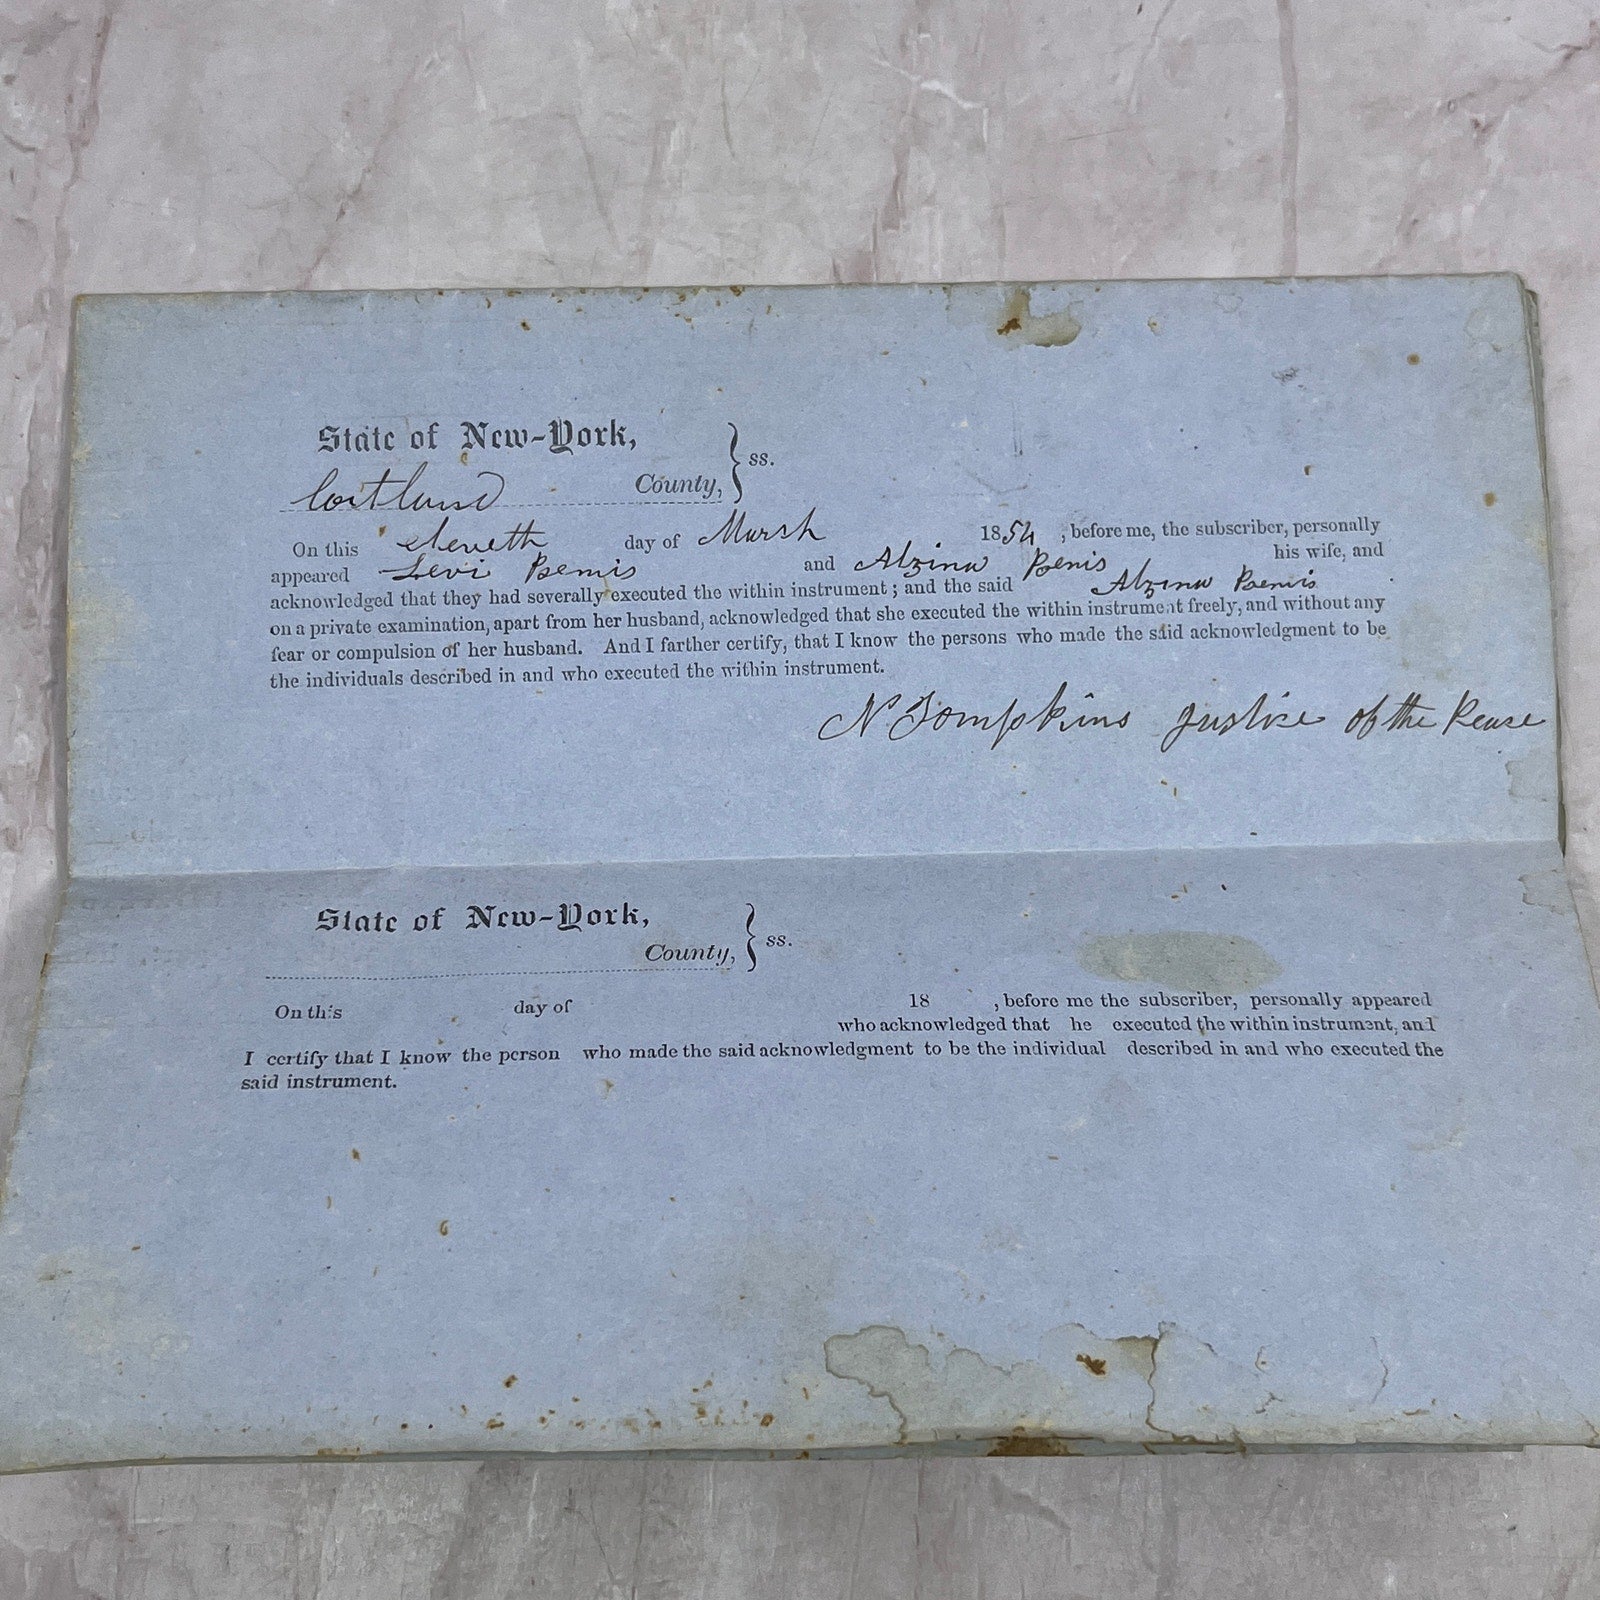 State of New-York,
Cortland County, } ss.
On this eleveth day of Marsh 1854, before me, the subscriber, personally
appeared Levi Bemis and Alzina Bemis his wife, and
acknowledged that they had severally executed the within instrument; and the said Alzina Bemis
on a private examination, apart from her husband, acknowledged that she executed the within instrument freely, and without any
fear or compulsion of her husband. And I farther certify, that I know the persons who made the said acknowledgment to be
the individuals described in and who executed the within instrument.
N Tompkins Justise of the Pease
State of New-York,
County, } ss.
On this day of 18 , before me the subscriber, personally appeared
who acknowledged that he executed the within instrument, and
I certify that I know the person who made the said acknowledgment to be the individual described in and who executed the
said instrument.